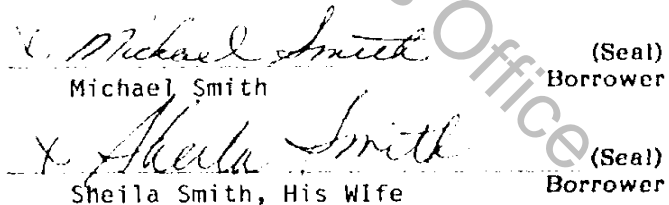 X. Michael Smith (Seal)
Michael Smith Borrower
X Sheila Smith (Seal)
Sheila Smith, His WIfe Borrower
s Office